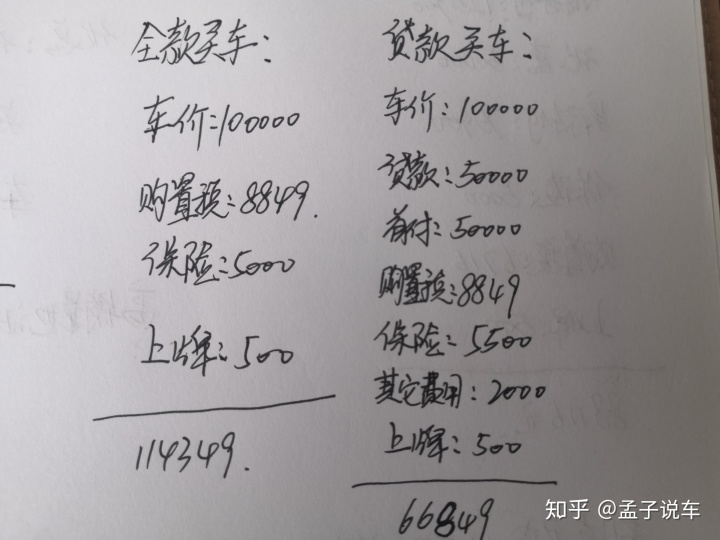 全款买车:
车价:100000
购置税:8849.
保险:5000
上牌:500
114349.
贷款买车:
车价:100000
贷款:50000
首付:50000
购置税:8849
保险:5500
其它费用:2000
上牌:500
66849
知乎 @孟子说车